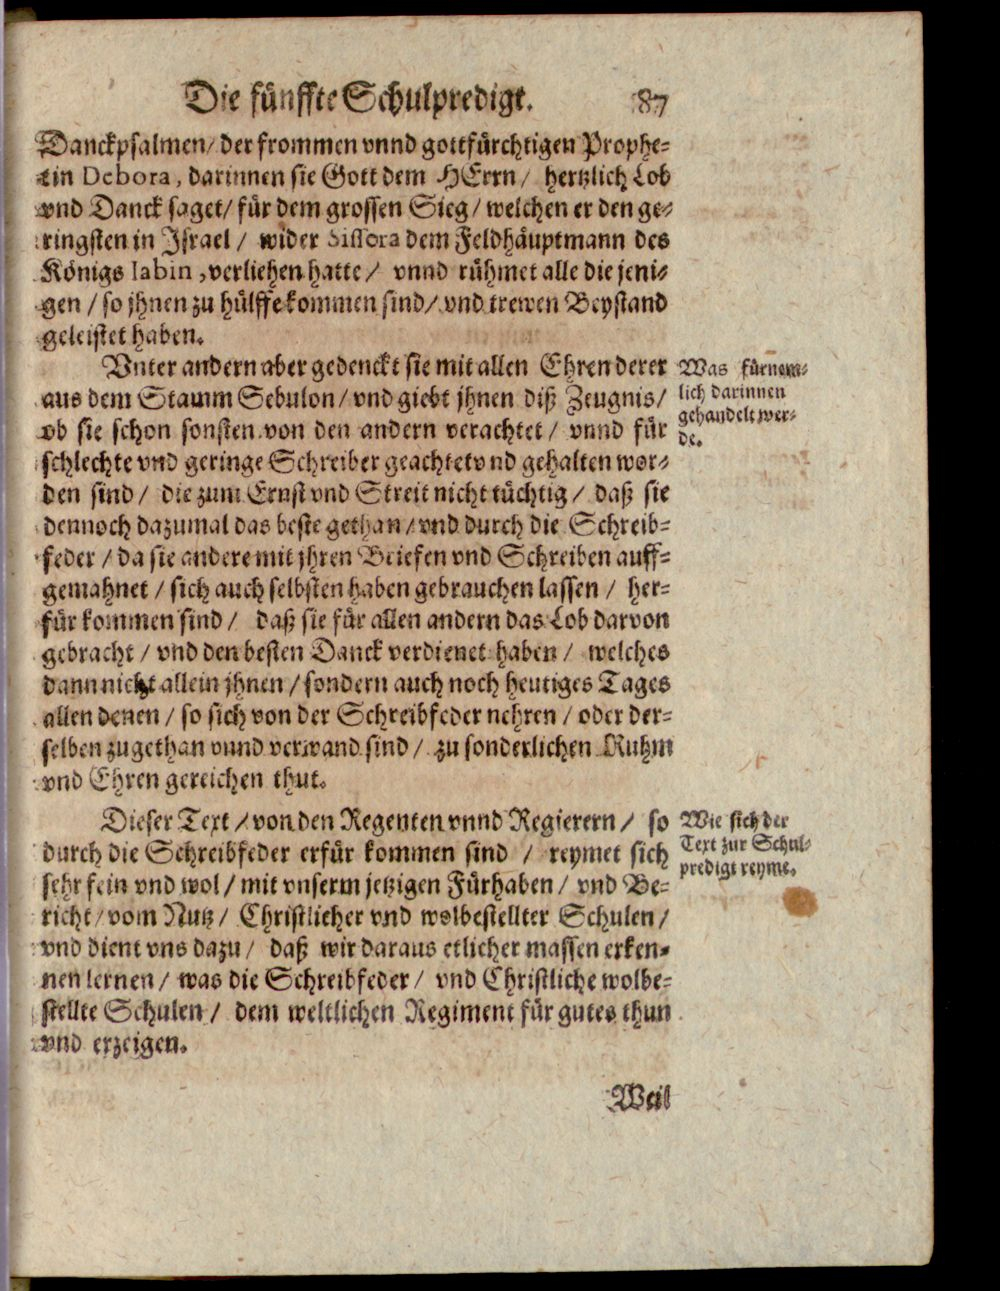 Die fünffte Schulpredigt. 87
Danckpsalmen/ der frommen vnnd gottfürchtigen Prophe-
tin Debora, darinnen sie Gott dem HErrn/ hertzlich Lob
vnd Danck saget/ für dem grossen Sieg/ welchen er den ge-
ringsten in Israel/ wider Sissera dem Feldhäuptmann des
Königs Iabin, verliehen hatte/ vnnd rühmet alle die jeni-
gen/ so jhnen zu hülffe kommen sind/ vnd trewen Beystand
geleistet haben.
Vnter andern aber gedenckt sie mit allen Ehren derer
aus dem Stamm Sebulon/ vnd giebt jhnen diß Zeugnis/
ob sie schon sonsten von den andern verachtet/ vnnd für
schlechte vnd geringe Schreiber geachtetv nd gehalten wor-
den sind/ die zum Ernst vnd Streit nicht tüchtig/ daß sie
dennoch dazumal das beste gethan/ vnd durch die Schreib-
feder/ da sie andere mit jhren Briefen vnd Schreiben auff-
gemahnet/ sich auch selbsten haben gebrauchen lassen/ her-
für kommen sind/ daß sie für allen andern das Lob darvon
gebracht/ vnd den besten Danck verdienet haben/ welches
dann nicht allein jhnen/ sondern auch noch heutiges Tages
allen denen/ so sich von der Schreibfeder nehren/ oder der-
selben zugethan vnnd verwand sind/ zu sonderlichen Ruhm
vnd Ehren gereichen thut.
Was fürnem-
lich darinnen
gehandelt wer-
de.
Dieser Text/ von den Regenten vnnd Regierern/ so
durch die Schreibfeder erfür kommen sind/ reymet sich
sehr fein vnd wol/ mit vnserm jetzigen Fürhaben/ vnd Be-
richt/ vom Nutz/ Christlicher vnd wolbestellter Schulen/
vnd dient vns dazu/ daß wir daraus etlicher massen erken-
nen lernen/ was die Schreibfeder/ vnd Christliche wolbe-
stellte Schulen/ dem weltlichen Regiment für gutes thun
vnd erzeigen.
Wie sich der
Text zur Schul-
predigt reyme.
Weil